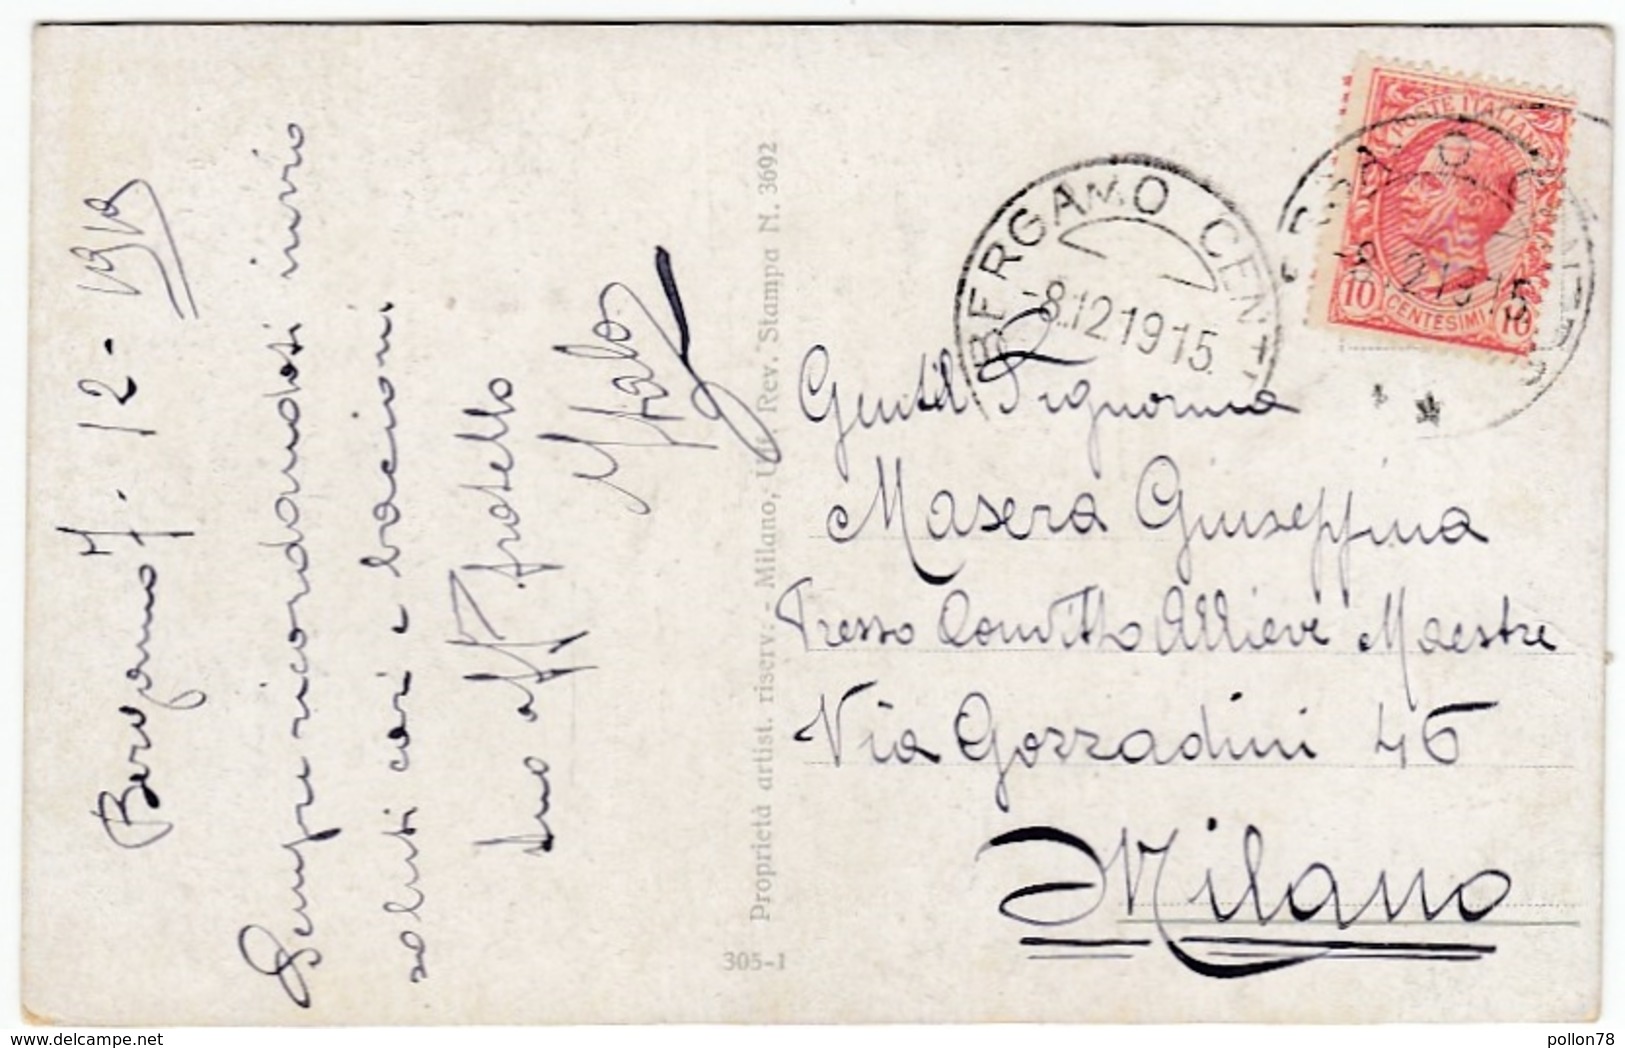 Bergamo 7-12-1915
Sempre ricordandoti invio
soliti cari e bacioni
tuo aff. fratello
Italo
Proprietà artist. riserv. - Milano, Uff. Rev. Stampa N. 3692
305-1
POSTE ITALIANE
10 CENTESIMI 10
BERGAMO CENT
-8.12 1915.
Gentil Signorina
Masera Giuseppina
Presso Convitto Allieve Maestre
Via Gozzadini 46
Milano
www.delcampe.net
pollon78